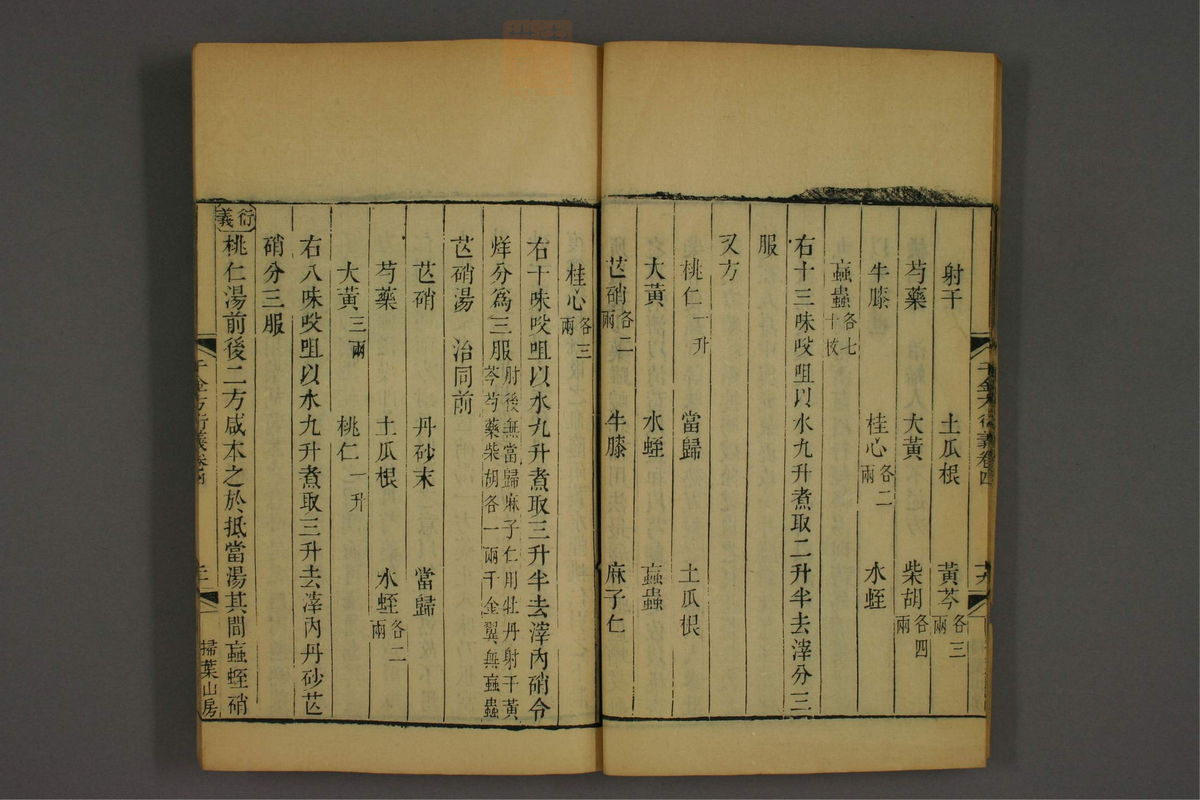 千金方衍義卷四
射干 土瓜根 黃芩各三兩
芍藥 大黃 柴胡各四兩
牛膝 桂心各二兩 水蛭
蝱蟲各七十枚
右十三味㕮咀以水九升煮取二升半去滓分三
服
又方
桃仁一升 當歸 土瓜根
大黃 水蛭 蝱蟲
芒硝各二兩 牛膝 麻子仁
桂心各三兩
右十味㕮咀以水九升煮取三升半去滓內硝令
烊分爲三服肘後無當歸麻子仁用牡丹射干黃芩芍藥柴胡各一兩千金翼無蝱蟲
芒硝湯 治同前
芒硝 丹砂末 當歸
芍藥 土瓜根 水蛭各二兩
大黃三兩 桃仁一升
右八味㕮咀以水九升煮取三升去滓內丹砂芒
硝分三服
衍義
桃仁湯前後二方咸本之於抵當湯其間蝱蛭硝
千金方衍義卷四
掃葉山房